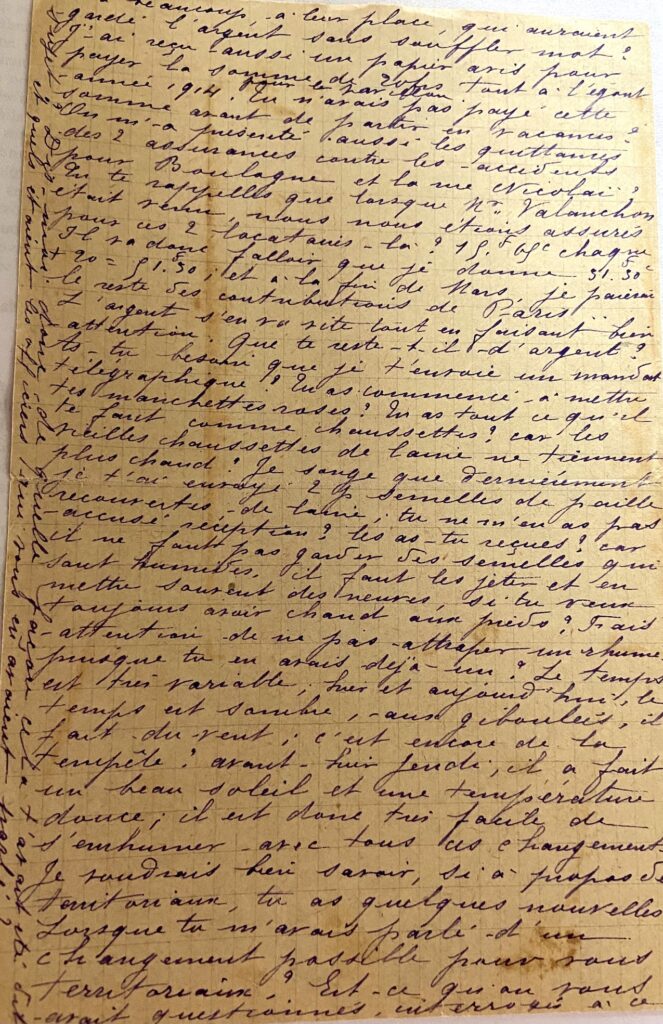 beaucoup, à leur place, qui auraient
gardé l'argent sans souffler mot?
J'ai reçu aussi un papier avis pour
payer la somme de tout à l'égout
année 1914. Tu n'avais pas payé cette
somme avant de partir en vacances?
On m'a présenté aussi les quittances
des 2 assurances contre les accidents
pour Boulogne et la rue Nicolaï?
Tu te rappelles que lorsque Mr Valanchon
était venu, nous nous étions assurés
pour ces 2 locatairis-là? 15f 65c chaque
Il va donc falloir que je donne 31.30c
+ 20 = 51.30; et à la fin de Mars, je paierai
le reste des contributions de Paris...
L'argent s'en va vite tout en faisant bien
attention. Que te reste-t-il d'argent?
As-tu besoin que je t'envoie un mandat
télégraphique? Tu as commencé à mettre
tes manchettes roses? Tu as tout ce qu'il
te faut comme chaussettes? car les
vieilles chaussettes de laine ne tiennent
plus chaud? Je songe que dernièrement
je t'ai envoyé 2 p. semelles de paille
recouvertes de laine; tu ne m'en as pas
accusé réception? les as-tu reçues? car
il ne faut pas garder des semelles qui
sont humides, il faut les jeter et en
mettre souvent des neuves, si tu veux
toujours avoir chaud aux pieds? Fais
attention de ne pas attraper un rhume
puisque tu en avais déjà un? Le temps
est très variable; hier et aujourd'hui, le
temps est sombre, aux giboulées, il
fait du vent; c'est encore de la
tempête? avant-hier Jeudi, il a fait
un beau soleil et une température
douce; il est donc très facile de
s'enrhumer avec tous ces changements.
Je voudrais bien savoir, si à propos de
territoriaux, tu as quelques nouvelles
Lorsque tu m'avais parlé d'un
changement possible pour vous
territoriaux? Est-ce qu'on vous
avait questionnés, interrogés à ce
sujet? Dis-moi donc de quelle façon cela t'avait été dit
et quels étaient les officiers qui vous en avaient parlé?